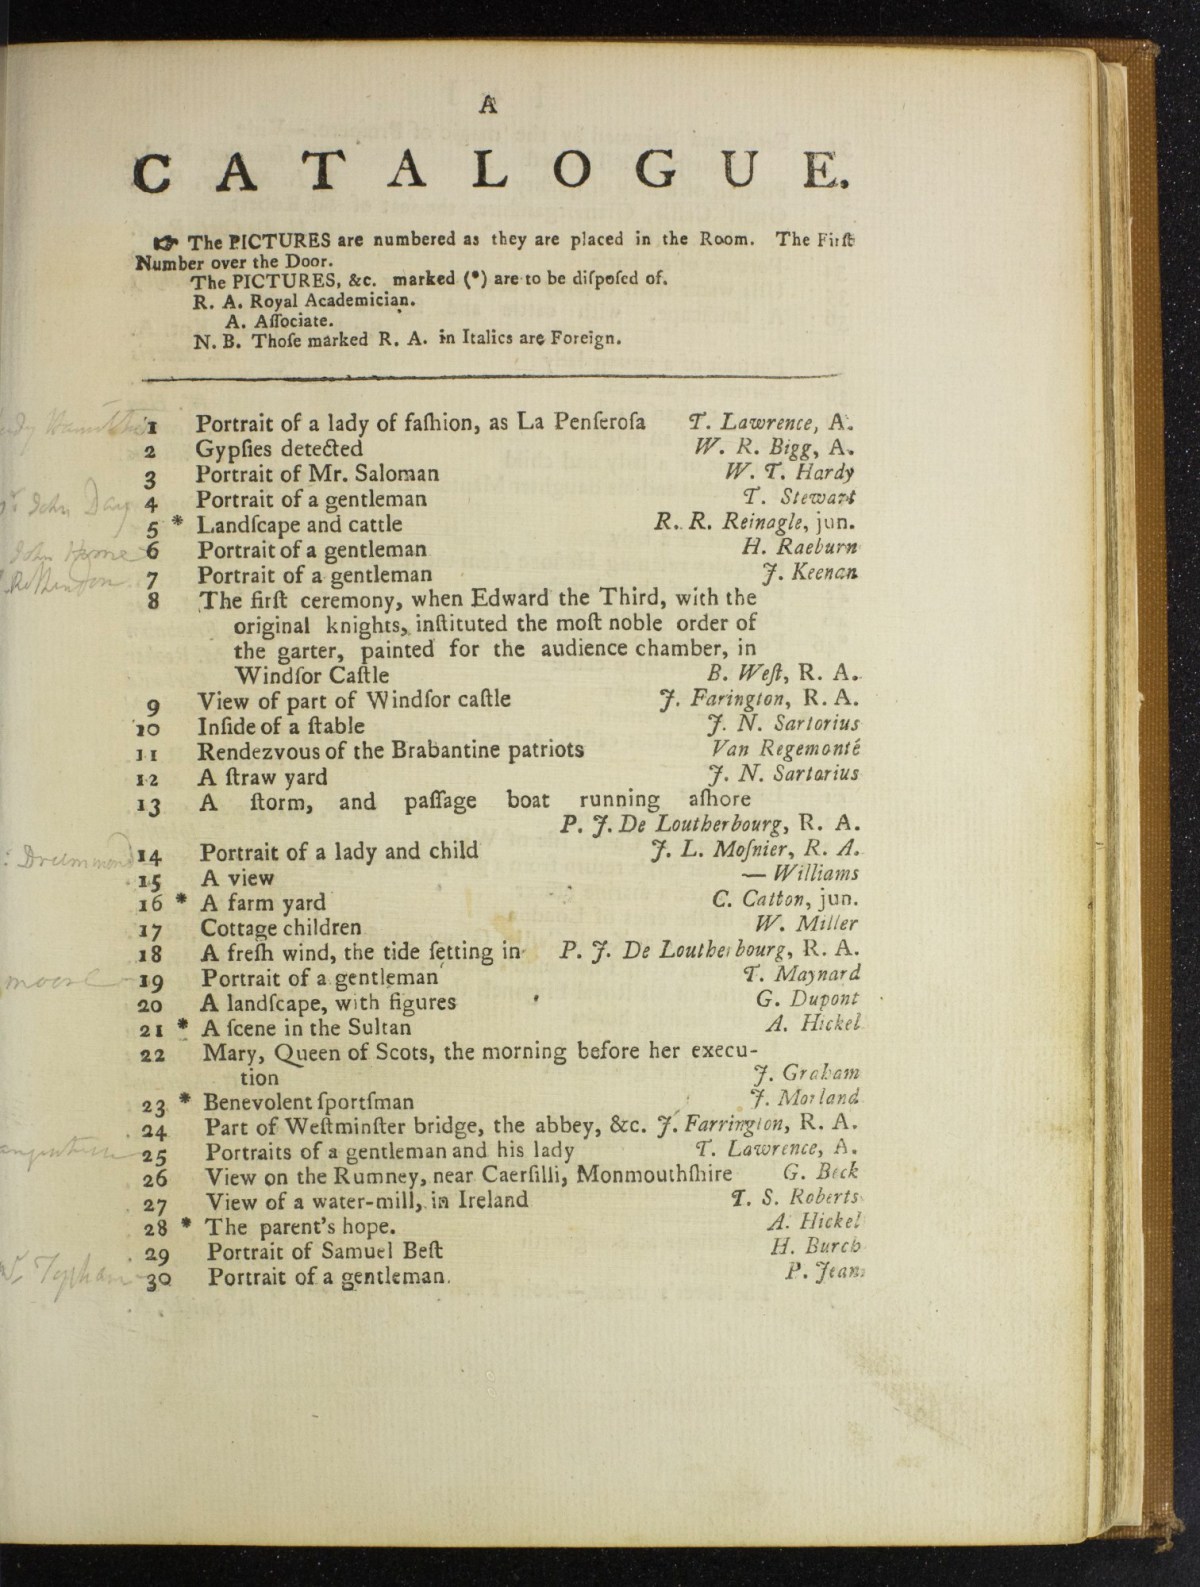 A
CATALOGUE.
☞ The PICTURES are numbered as they are placed in the Room. The Firſt
Number over the Door.
The PICTURES, &c. marked (*) are to be diſpoſed of.
R. A. Royal Academician.
A. Aſſociate.
N. B. Thoſe marked R. A. in Italics are Foreign.
1 Portrait of a lady of faſhion, as La Penſeroſa T. Lawrence, A.
2 Gypſies detected W. R. Bigg, A.
3 Portrait of Mr. Saloman W. T. Hardy
John Day 4 Portrait of a gentleman T. Stewart
5 * Landſcape and cattle R. R. Reinagle, jun.
John Home 6 Portrait of a gentleman H. Raeburn
7 Portrait of a gentleman J. Keenan
8 The firſt ceremony, when Edward the Third, with the
original knights, inſtituted the moſt noble order of
the garter, painted for the audience chamber, in
Windſor Caſtle B. Weſt, R. A.
9 View of part of Windſor caſtle J. Farington, R. A.
10 Inſide of a ſtable J. N. Sartorius
11 Rendezvous of the Brabantine patriots Van Regemonté
12 A ſtraw yard J. N. Sartorius
13 A ſtorm, and paſſage boat running aſhore
P. J. De Loutherbourg, R. A.
: Drummond 14 Portrait of a lady and child J. L. Moſnier, R. A.
15 A view — Williams
16 * A farm yard C. Catton, jun.
17 Cottage children W. Miller
18 A freſh wind, the tide ſetting in P. J. De Loutherbourg, R. A.
moore 19 Portrait of a gentleman T. Maynard
20 A landſcape, with figures G. Dupont
21 * A ſcene in the Sultan A. Hickel
22 Mary, Queen of Scots, the morning before her execu-
tion J. Graham
23 * Benevolent ſportſman J. Morland
24 Part of Weſtminſter bridge, the abbey, &c. J. Farrington, R. A.
25 Portraits of a gentleman and his lady T. Lawrence, A.
26 View on the Rumney, near Caerſilli, Monmouthſhire G. Beck
27 View of a water-mill, in Ireland T. S. Roberts
28 * The parent's hope. A. Hickel
29 Portrait of Samuel Beſt H. Burch
Topham 30 Portrait of a gentleman. P. Jean